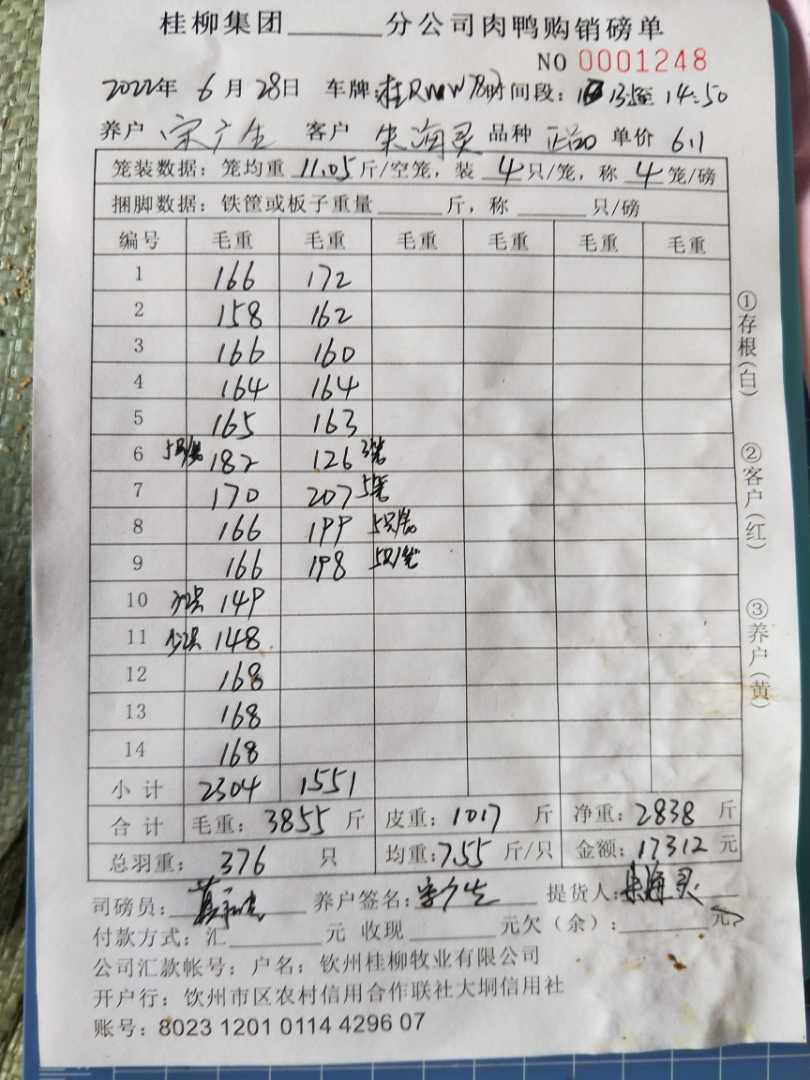 桂柳集团______分公司肉鸭购销磅单
NO 0001248
2022年 6月28日 车牌:桂R 时间段: 至 14:50
养户 宋广生 客户 朱海灵 品种 单价 6.1
笼装数据: 笼均重 11.05 斤/空笼, 装 4 只/笼, 称 4 笼/磅
捆脚数据: 铁筐或板子重量______斤, 称______只/磅
编号 毛重 毛重 毛重 毛重 毛重 毛重
1 166 172
2 158 162
3 166 160
4 164 164
5 165 163
6 5只/笼 182 126 3笼
7 170 207 5笼
8 166 199 5只/笼
9 166 198 5只/笼
10 149
11 少2只 148
12 168
13 168
14 168
小计 2304 1551
合计 毛重: 3855 斤 皮重: 1017 斤 净重: 2838 斤
总羽重: 376 只 均重: 7.55 斤/只 金额: 17312 元
司磅员: 养户签名: 宋广生 提货人: 朱海灵
付款方式: 汇______元 收现______元欠(余):______元
公司汇款帐号: 户名: 钦州桂柳牧业有限公司
开户行: 钦州市区农村信用合作联社大垌信用社
账号: 8023 1201 0114 4296 07
①存根(白)
②客户(红)
③养户(黄)